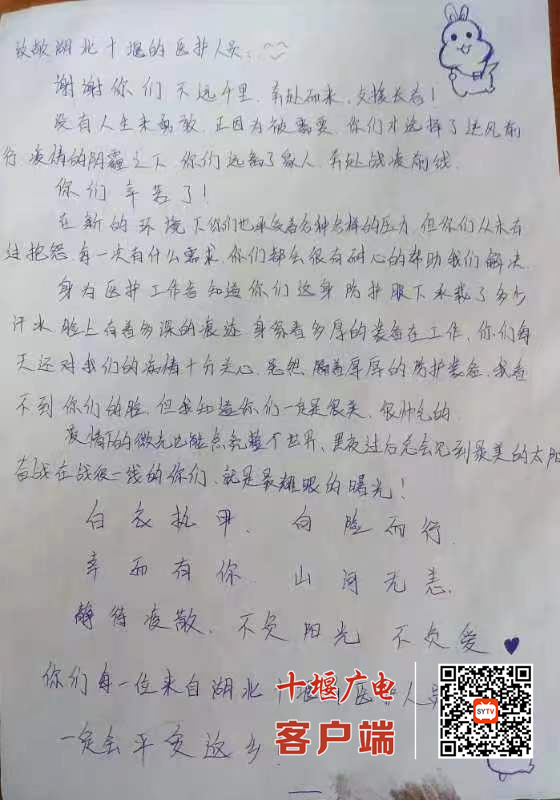 致敬湖北十堰的医护人员:
谢谢你们不远千里,奔赴而来,支援长春!
没有人生来勇敢,正因为被需要,你们才选择了逆风前
行,疫情的阴霾之下,你们远离了家人,奔赴战疫前线
你们辛苦了!
在新的环境下你们也承受着各种各样的压力,但你们从未有
过抱怨,每一次有什么需求,你们都会很有耐心的帮助我们解决.
身为医护工作者知道你们这身防护服下承载了多少
汗水,脸上有着多深的痕迹,身穿着多厚的装备在工作,你们每
天还对我们的病情十分关心,虽然隔着厚厚的防护装备,我看
不到你们的脸,但我知道你们一定是很美,很帅气的.
疫情下的微光也能点亮整个世界,黑夜过后总会见到最美的太阳
奋战在战疫一线的你们,就是最耀眼的曙光!
白衣执甲,向险而行.
幸而有你,山河无恙.
静待疫散,不负阳光 不负爱
你们每一位来自湖北十堰 医护人员
一定会平安返乡.
十堰广电
客户端
SYTV